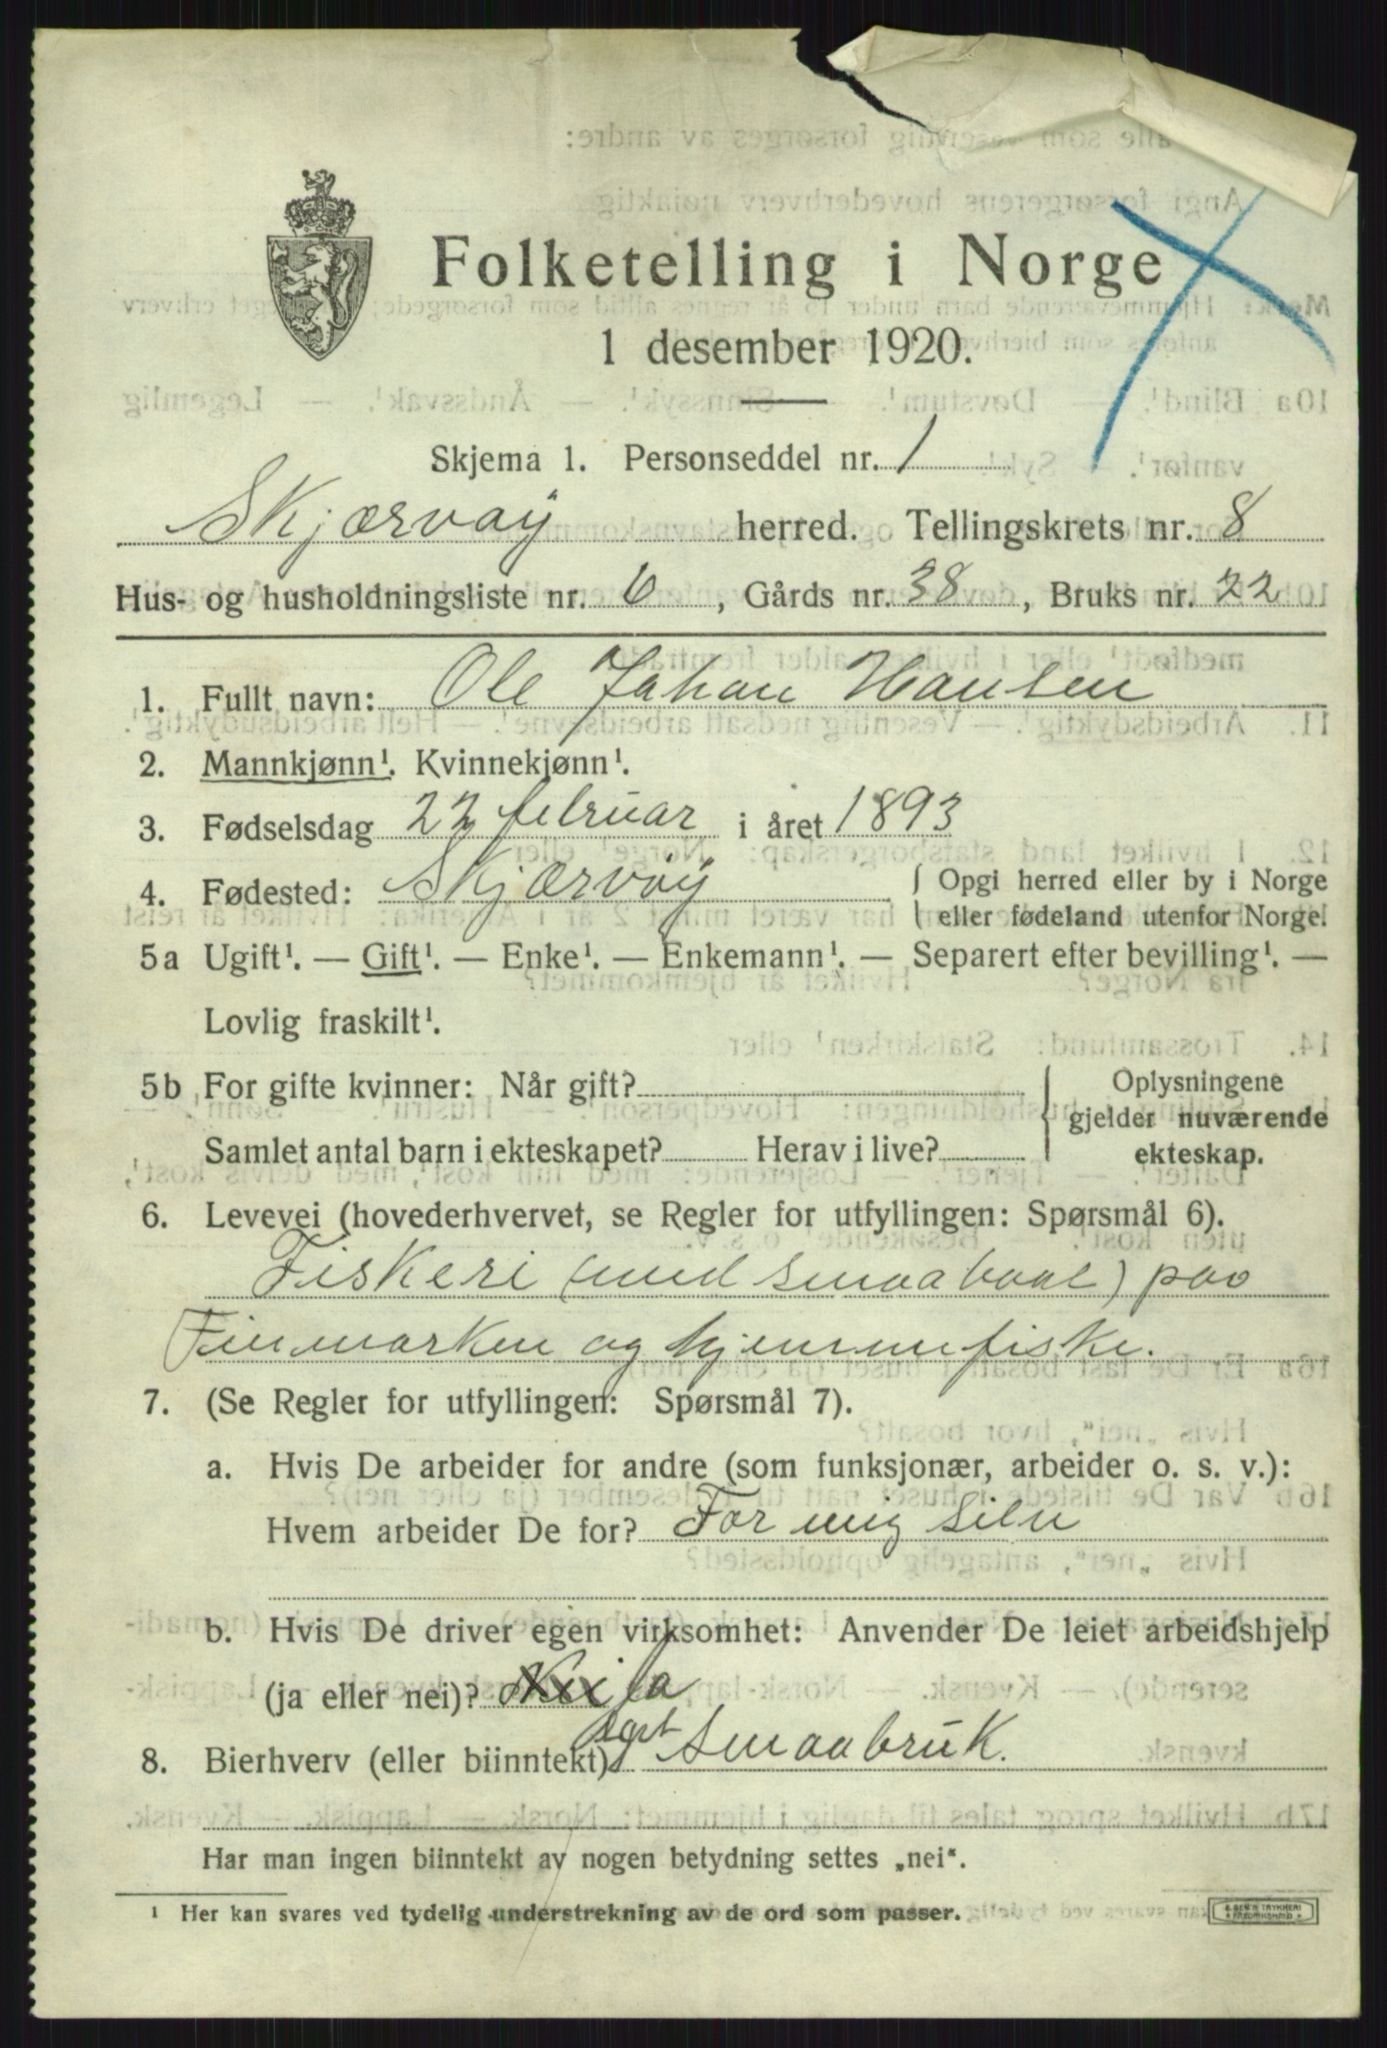 Folketelling i Norge
1 desember 1920.
Skjema 1. Personseddel nr. 1
Skjærvøy herred. Tellingskrets nr. 8
Hus- og husholdningsliste nr. 6, Gårds nr. 38, Bruks nr. 22
1. Fullt navn: Ole Johan Hansen
2. Mannkjønn¹. Kvinnekjønn¹.
3. Fødselsdag 22 februar i året 1893
4. Fødested: Skjærvøy { Opgi herred eller by i Norge
eller fødeland utenfor Norge.
5a Ugift¹. — Gift¹. — Enke¹. — Enkemann¹. — Separert efter bevilling¹. —
Lovlig fraskilt¹.
5b For gifte kvinner: Når gift? { Oplysningene
gjelder nuværende
Samlet antal barn i ekteskapet? Herav i live? ekteskap.
6. Levevei (hovederhvervet, se Regler for utfyllingen: Spørsmål 6).
Fiskeri (med smaabaat) paa
Finmarken og hjemmefiske.
7. (Se Regler for utfyllingen: Spørsmål 7).
a. Hvis De arbeider for andre (som funksjonær, arbeider o. s. v.):
Hvem arbeider De for? For mig selv
b. Hvis De driver egen virksomhet: Anvender De leiet arbeidshjelp
(ja eller nei)? Nei Ja
8. Bierhverv (eller biinntekt) Smaabruk.
Har man ingen biinntekt av nogen betydning settes „nei“.
¹ Her kan svares ved tydelig understrekning av de ord som passer.